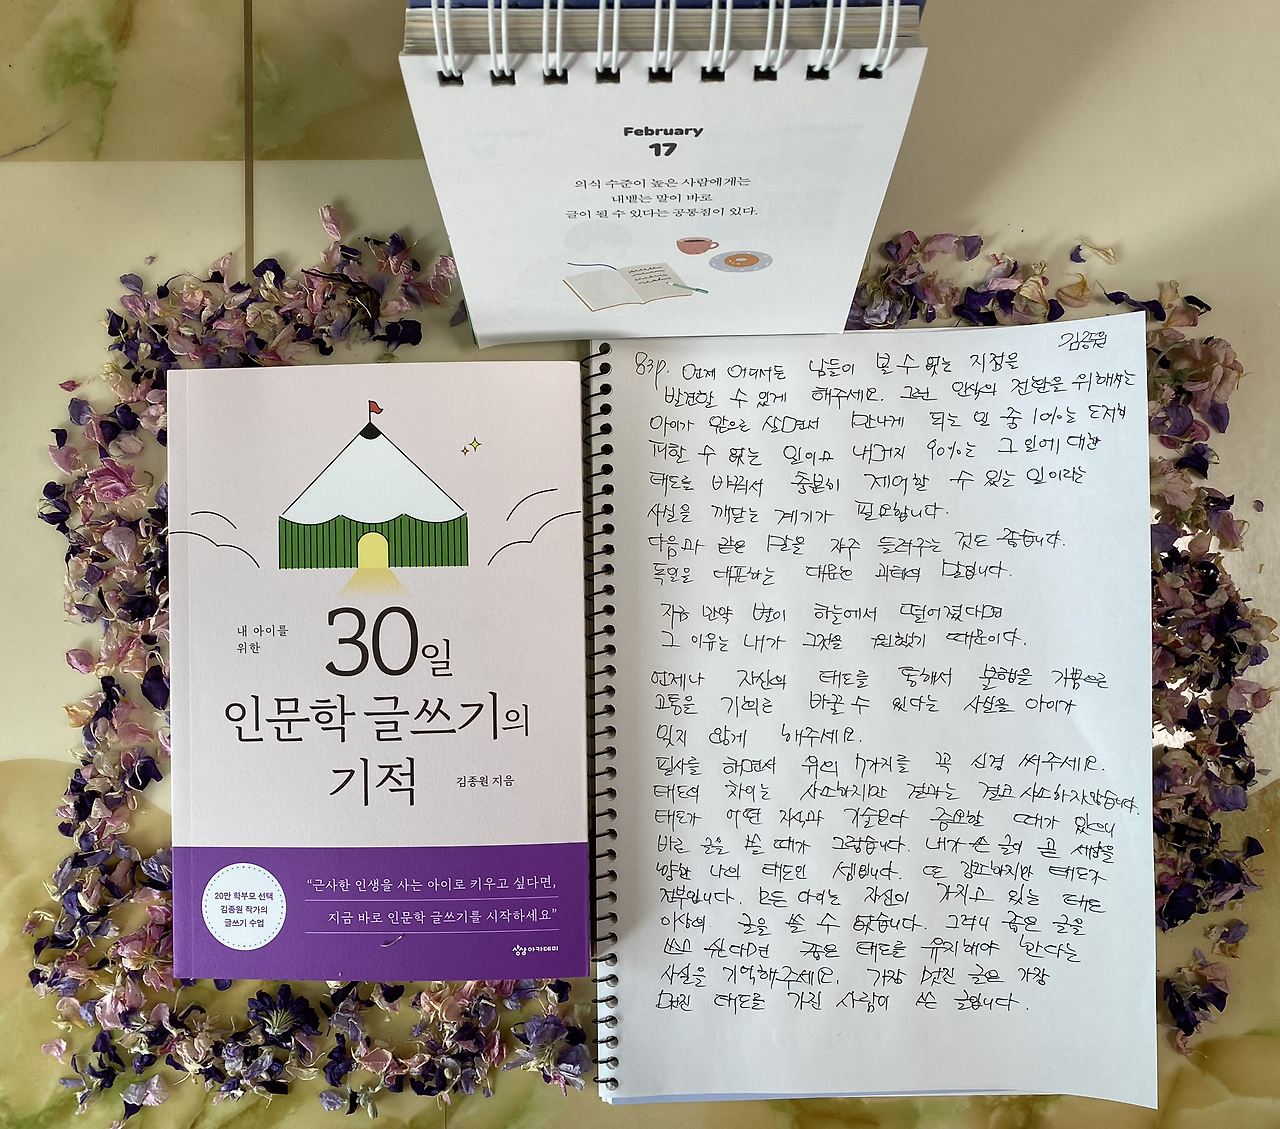 February
17
의식 수준이 높은 사람에게는
내뱉는 말이 바로
글이 될 수 있다는 공통점이 있다.
내 아이를
위한
30일
인문학 글쓰기의
기적
김종원 지음
20만 학부모 선택
김종원 작가의
글쓰기 수업
“근사한 인생을 사는 아이로 키우고 싶다면,
지금 바로 인문학 글쓰기를 시작하세요”
상상아카데미
김종원
83p. 언제 어디서든 남들이 볼 수 없는 지점을
발견할 수 있게 해주세요. 그런 인식의 전환을 위해서는
아이가 앞으로 살면서 만나게 되는 일 중 10%는 도저히
피할 수 없는 일이고 나머지 90%는 그 일에 대한
태도를 바꿔서 충분히 제어할 수 있는 일이라는
사실을 깨닫는 계기가 필요합니다.
다음과 같은 말을 자주 들려주는 것도 좋습니다.
독일을 대표하는 대문호 괴테의 말입니다.
지금 만약 별이 하늘에서 떨어졌다면
그 이유는 내가 그것을 원했기 때문이다.
언제나 자신의 태도를 통해서 불행을 기쁨으로
고통을 기회로 바꿀 수 있다는 사실을 아이가
잊지 않게 해주세요.
필사를 하면서 위의 7가지를 꼭 신경 써주세요.
태도의 차이는 사소하지만 결과는 결코 사소하지 않습니다.
태도가 어떤 지식과 기술보다 중요할 때가 있으니
바로 글을 쓸 때가 그렇습니다. 내가 쓴 글이 곧 세상을
향한 나의 태도인 셈입니다. 또 강조하지만 태도가
전부입니다. 모든 아이는 자신이 가지고 있는 태도
이상의 글을 쓸 수 없습니다. 그러니 좋은 글을
쓰고 싶다면 좋은 태도를 유지해야 한다는
사실을 기억해주세요. 가장 멋진 글은 가장
멋진 태도를 가진 사람이 쓴 글입니다.